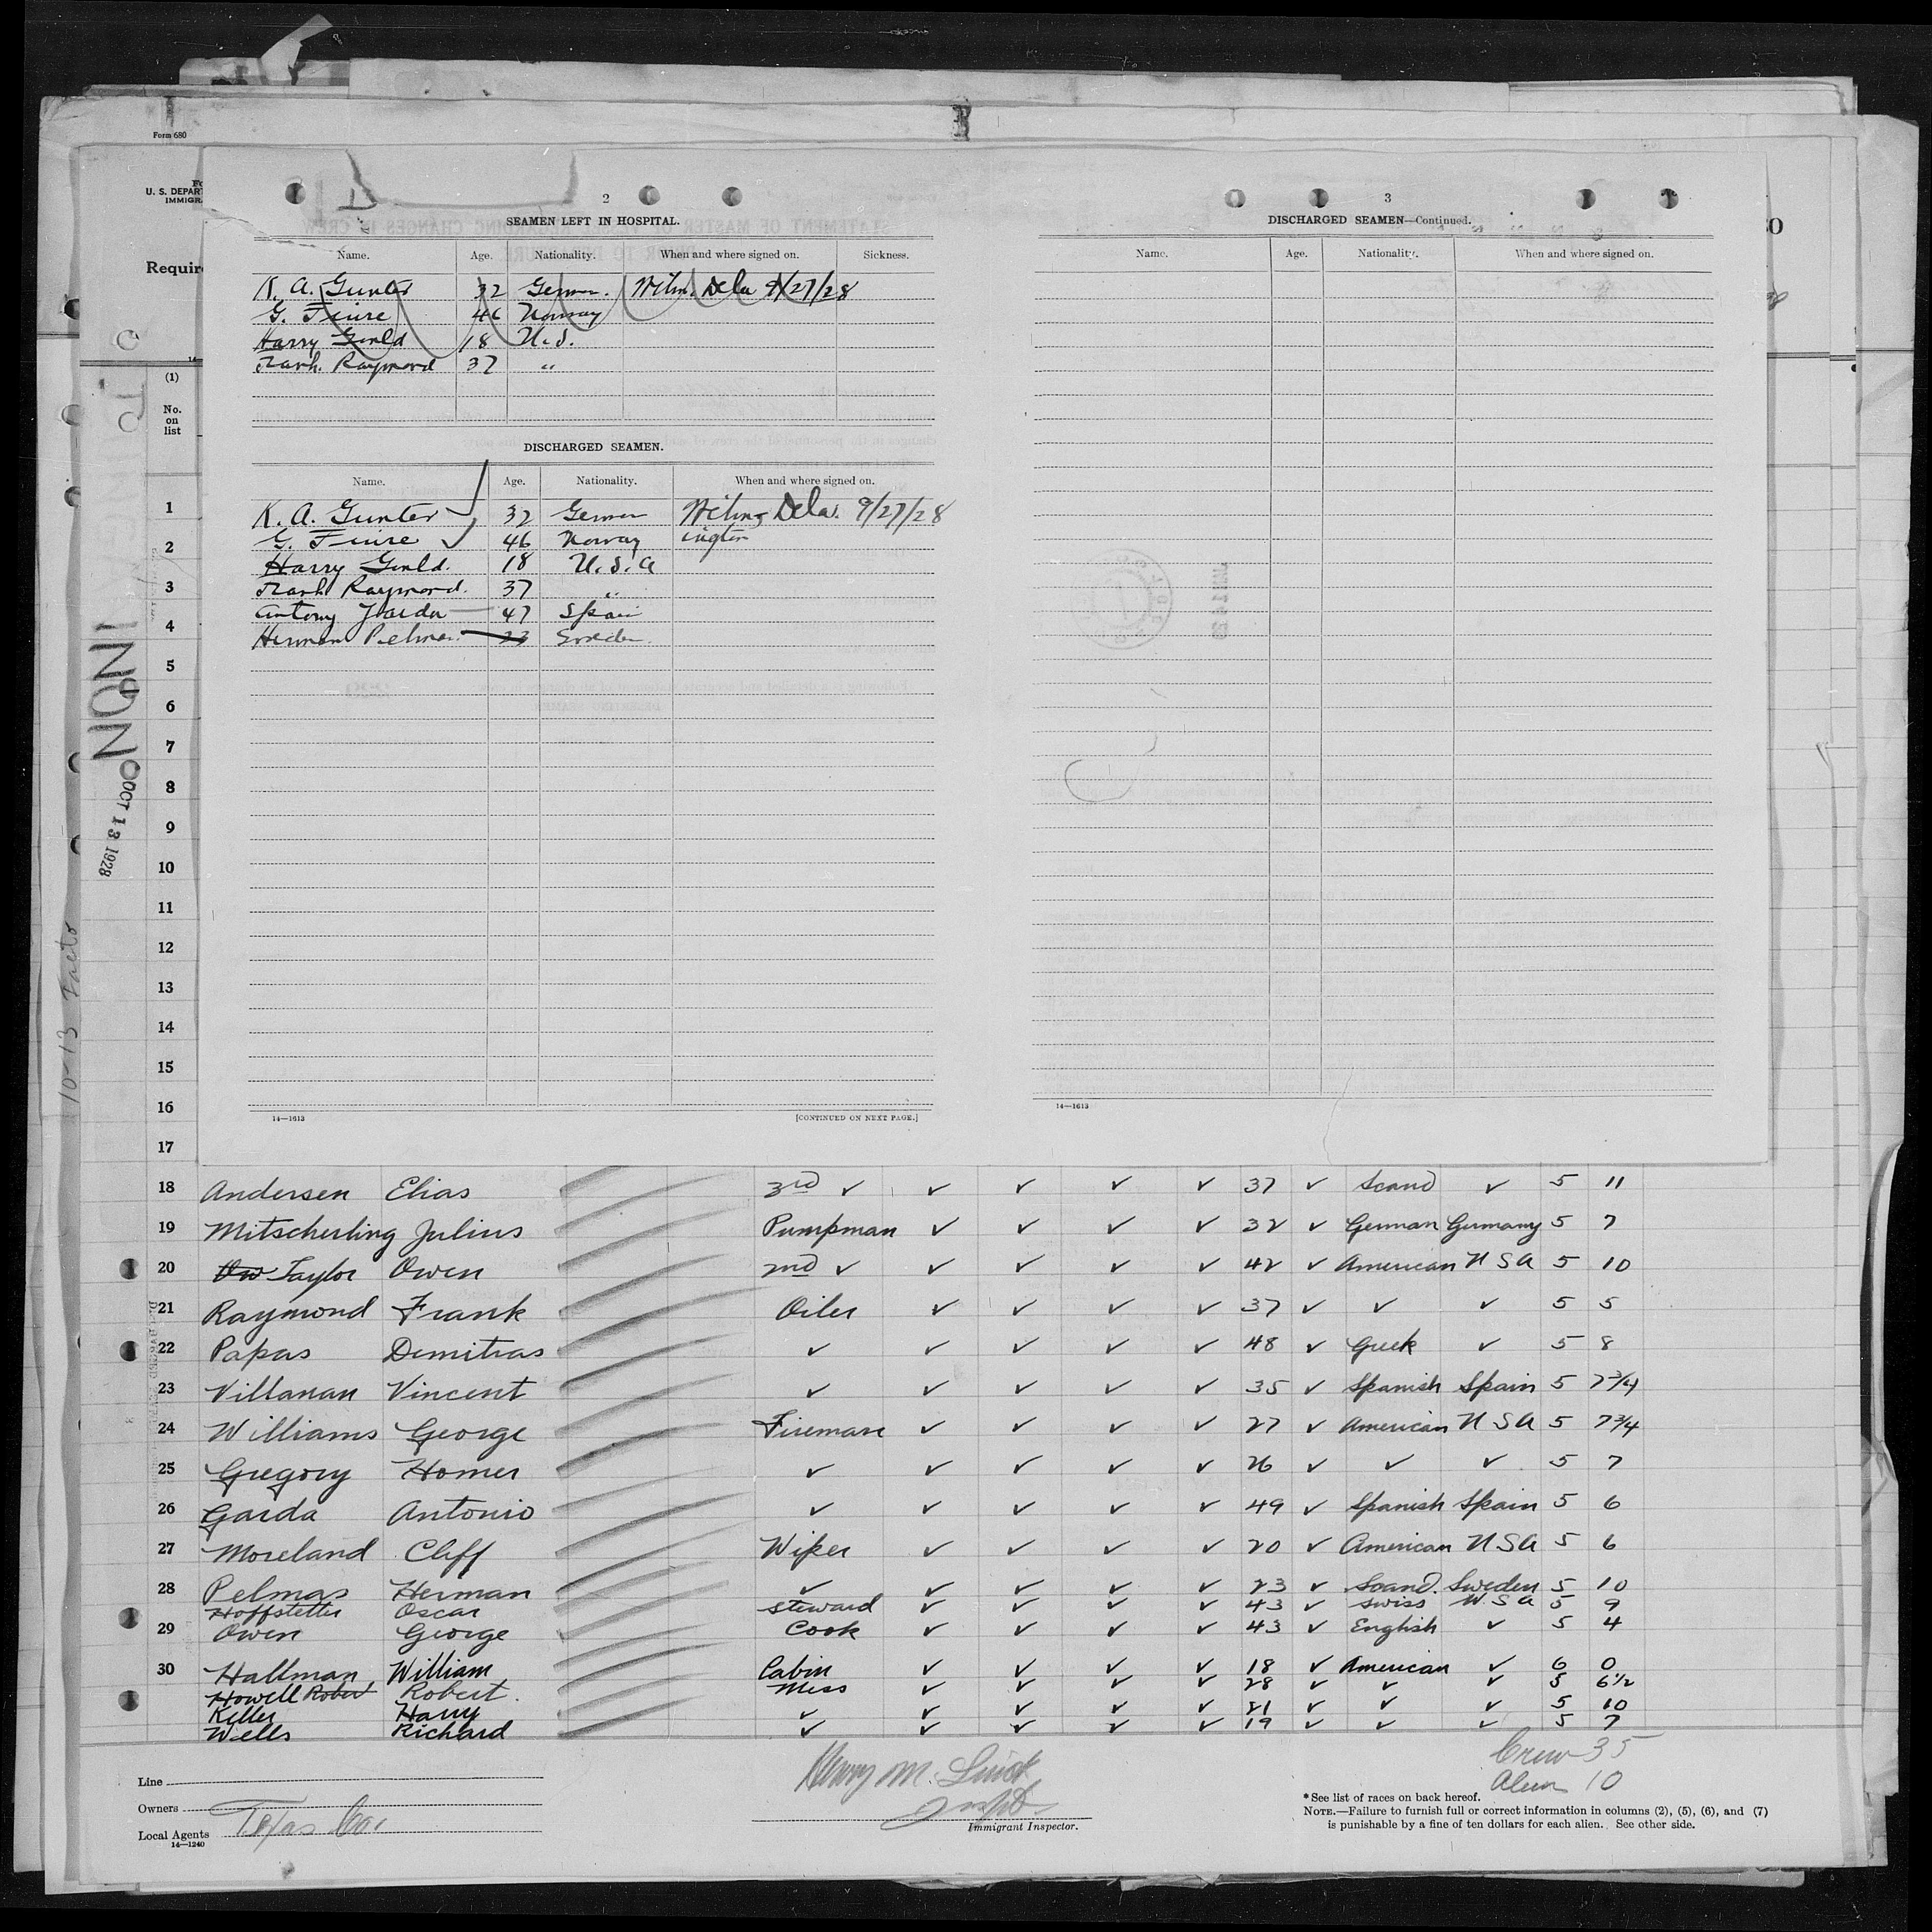 Form 680
U. S. DEPAR
IMMIGRA
Requir
2
SEAMEN LEFT IN HOSPITAL.
Name. Age. Nationality. When and where signed on. Sickness.
K. A. Gunter 32 German. Wilm. Dela 9/27/28
G. 46 Norway
Harry Gould 18 U.S.
Frank. Raymond 37 "
DISCHARGED SEAMEN.
Name. Age. Nationality. When and where signed on.
K. A. Gunter 32 German Wilming Dela. 9/27/28
G. 46 Norway ington
Harry Gould. 18 U.S.A
Frank Raymond. 37 "
Antony 47 Spain
Herman 23 Sweden.
14—1613 [CONTINUED ON NEXT PAGE.]
3
DISCHARGED SEAMEN—Continued.
Name. Age. Nationality. When and where signed on.
14—1613
(1)
No.
on
list
1
2
3
4
5
6
7
8
9
10
11
12
13
14
15
16
17
OCT 13 1928
10-13
18 Andersen Elias 3rd ✓ ✓ ✓ ✓ ✓ 37 ✓ Scand ✓ 5 11
19 Mitscherling Julius Pumpman ✓ ✓ ✓ ✓ 32 ✓ German Germany 5 7
20 Ow Taylor Owen 2nd ✓ ✓ ✓ ✓ ✓ 42 ✓ American U S A 5 10
21 Raymond Frank Oiler ✓ ✓ ✓ ✓ 37 ✓ ✓ ✓ 5 5
22 Papas Demitras ✓ ✓ ✓ ✓ ✓ 48 ✓ Greek ✓ 5 8
23 Villanan Vincent ✓ ✓ ✓ ✓ ✓ 35 ✓ Spanish Spain 5 7 3/4
24 Williams George Fireman ✓ ✓ ✓ ✓ 27 ✓ American U S A 5 7 3/4
25 Gregory Homer ✓ ✓ ✓ ✓ ✓ 26 ✓ ✓ ✓ 5 7
26 Garda Antonio ✓ ✓ ✓ ✓ ✓ 49 ✓ Spanish Spain 5 6
27 Moreland Cliff Wiper ✓ ✓ ✓ ✓ 20 ✓ American U S A 5 6
28 Pelmas Herman ✓ ✓ ✓ ✓ ✓ 23 ✓ Scand. Sweden 5 10
Hoffstetter Oscar Steward ✓ ✓ ✓ ✓ 43 ✓ Swiss U. S a 5 9
29 Owen George Cook ✓ ✓ ✓ ✓ 43 ✓ English ✓ 5 4
30 Hallman William Cabin ✓ ✓ ✓ ✓ 18 ✓ American ✓ 6 0
Howell Robert Robert. Mess ✓ ✓ ✓ ✓ 28 ✓ ✓ ✓ 5 6 1/2
Keller Harry ✓ ✓ ✓ ✓ ✓ 21 ✓ ✓ ✓ 5 10
Wells Richard ✓ ✓ ✓ ✓ ✓ 19 ✓ ✓ ✓ 5 7
Crew 35
Alien 10
Line
Owners
Local Agents Texas Co.
14—1240
Henry M.
Immigrant Inspector.
* See list of races on back hereof.
NOTE.—Failure to furnish full or correct information in columns (2), (5), (6), and (7)
is punishable by a fine of ten dollars for each alien. See other side.